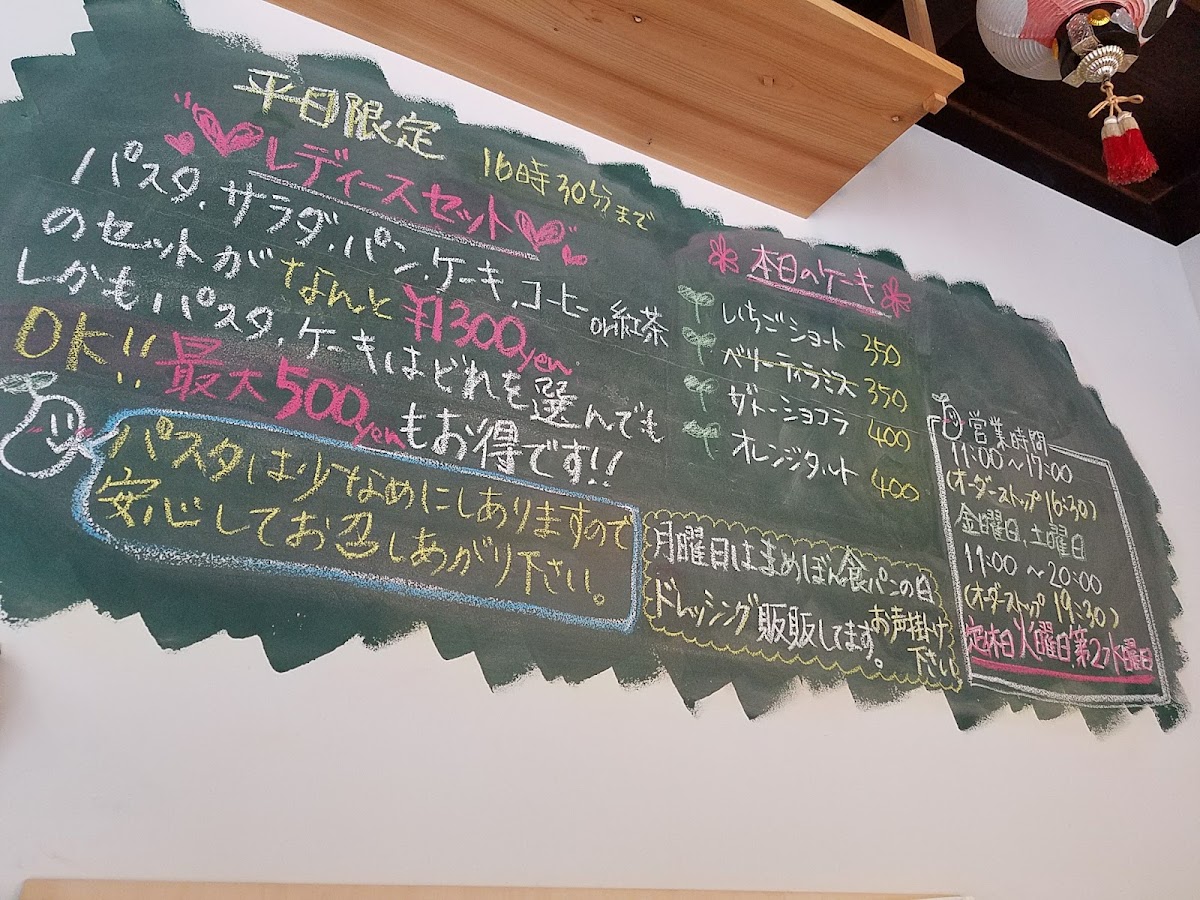 平日限定
16時30分まで
レディースセット
パスタ、サラダ、パン、ケーキ、コーヒーor紅茶
のセットがなんと¥1300yen
しかもパスタ、ケーキはどれを選んでも
OK!!最大500yenもお得です!!
パスタは少なめにしありますので
安心してお召しあがり下さい。
本日のケーキ
いちごショート 350
ベリーティラミス 350
ザトーショコラ 400
オレンジタルト 400
月曜日はまめぽん食パンの日
ドレッシング販販してます。お声掛け下さい
営業時間
11:00~17:00
(オーダーストップ 16:30)
金曜日、土曜日
11:00~20:00
(オーダーストップ 19:30)
定休日 火曜日、第2水曜日